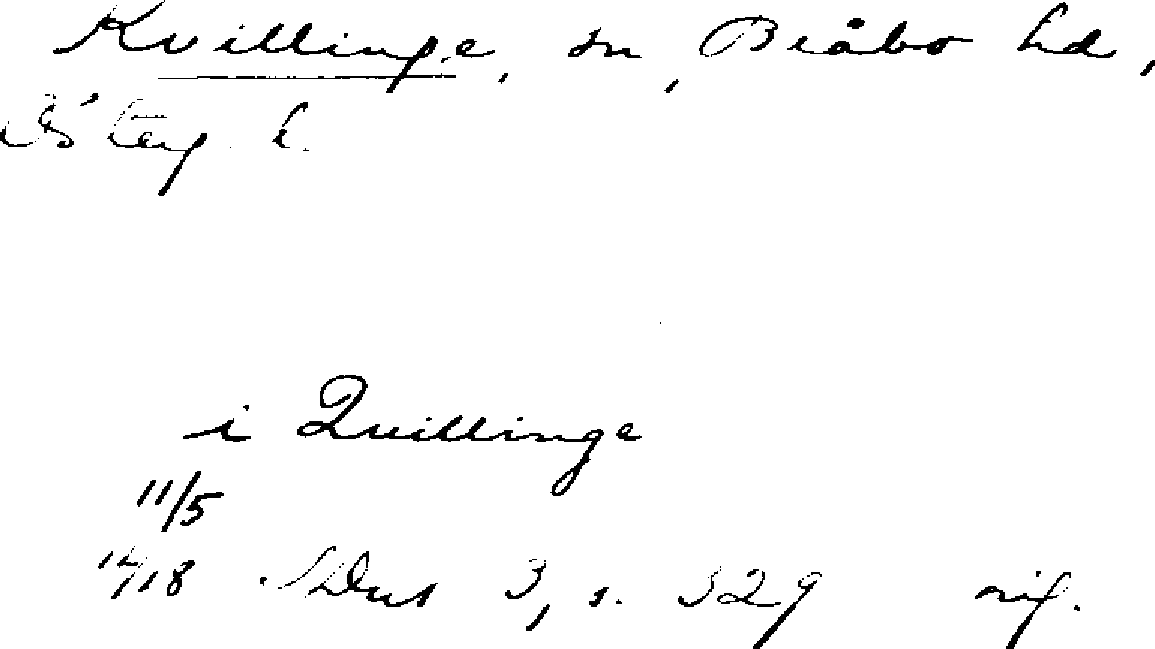 Kvillinge, sn, Bråbo hd,
Östg. l.
i Quillinge
11/5
1418 SDns 3, s. 329 orig.